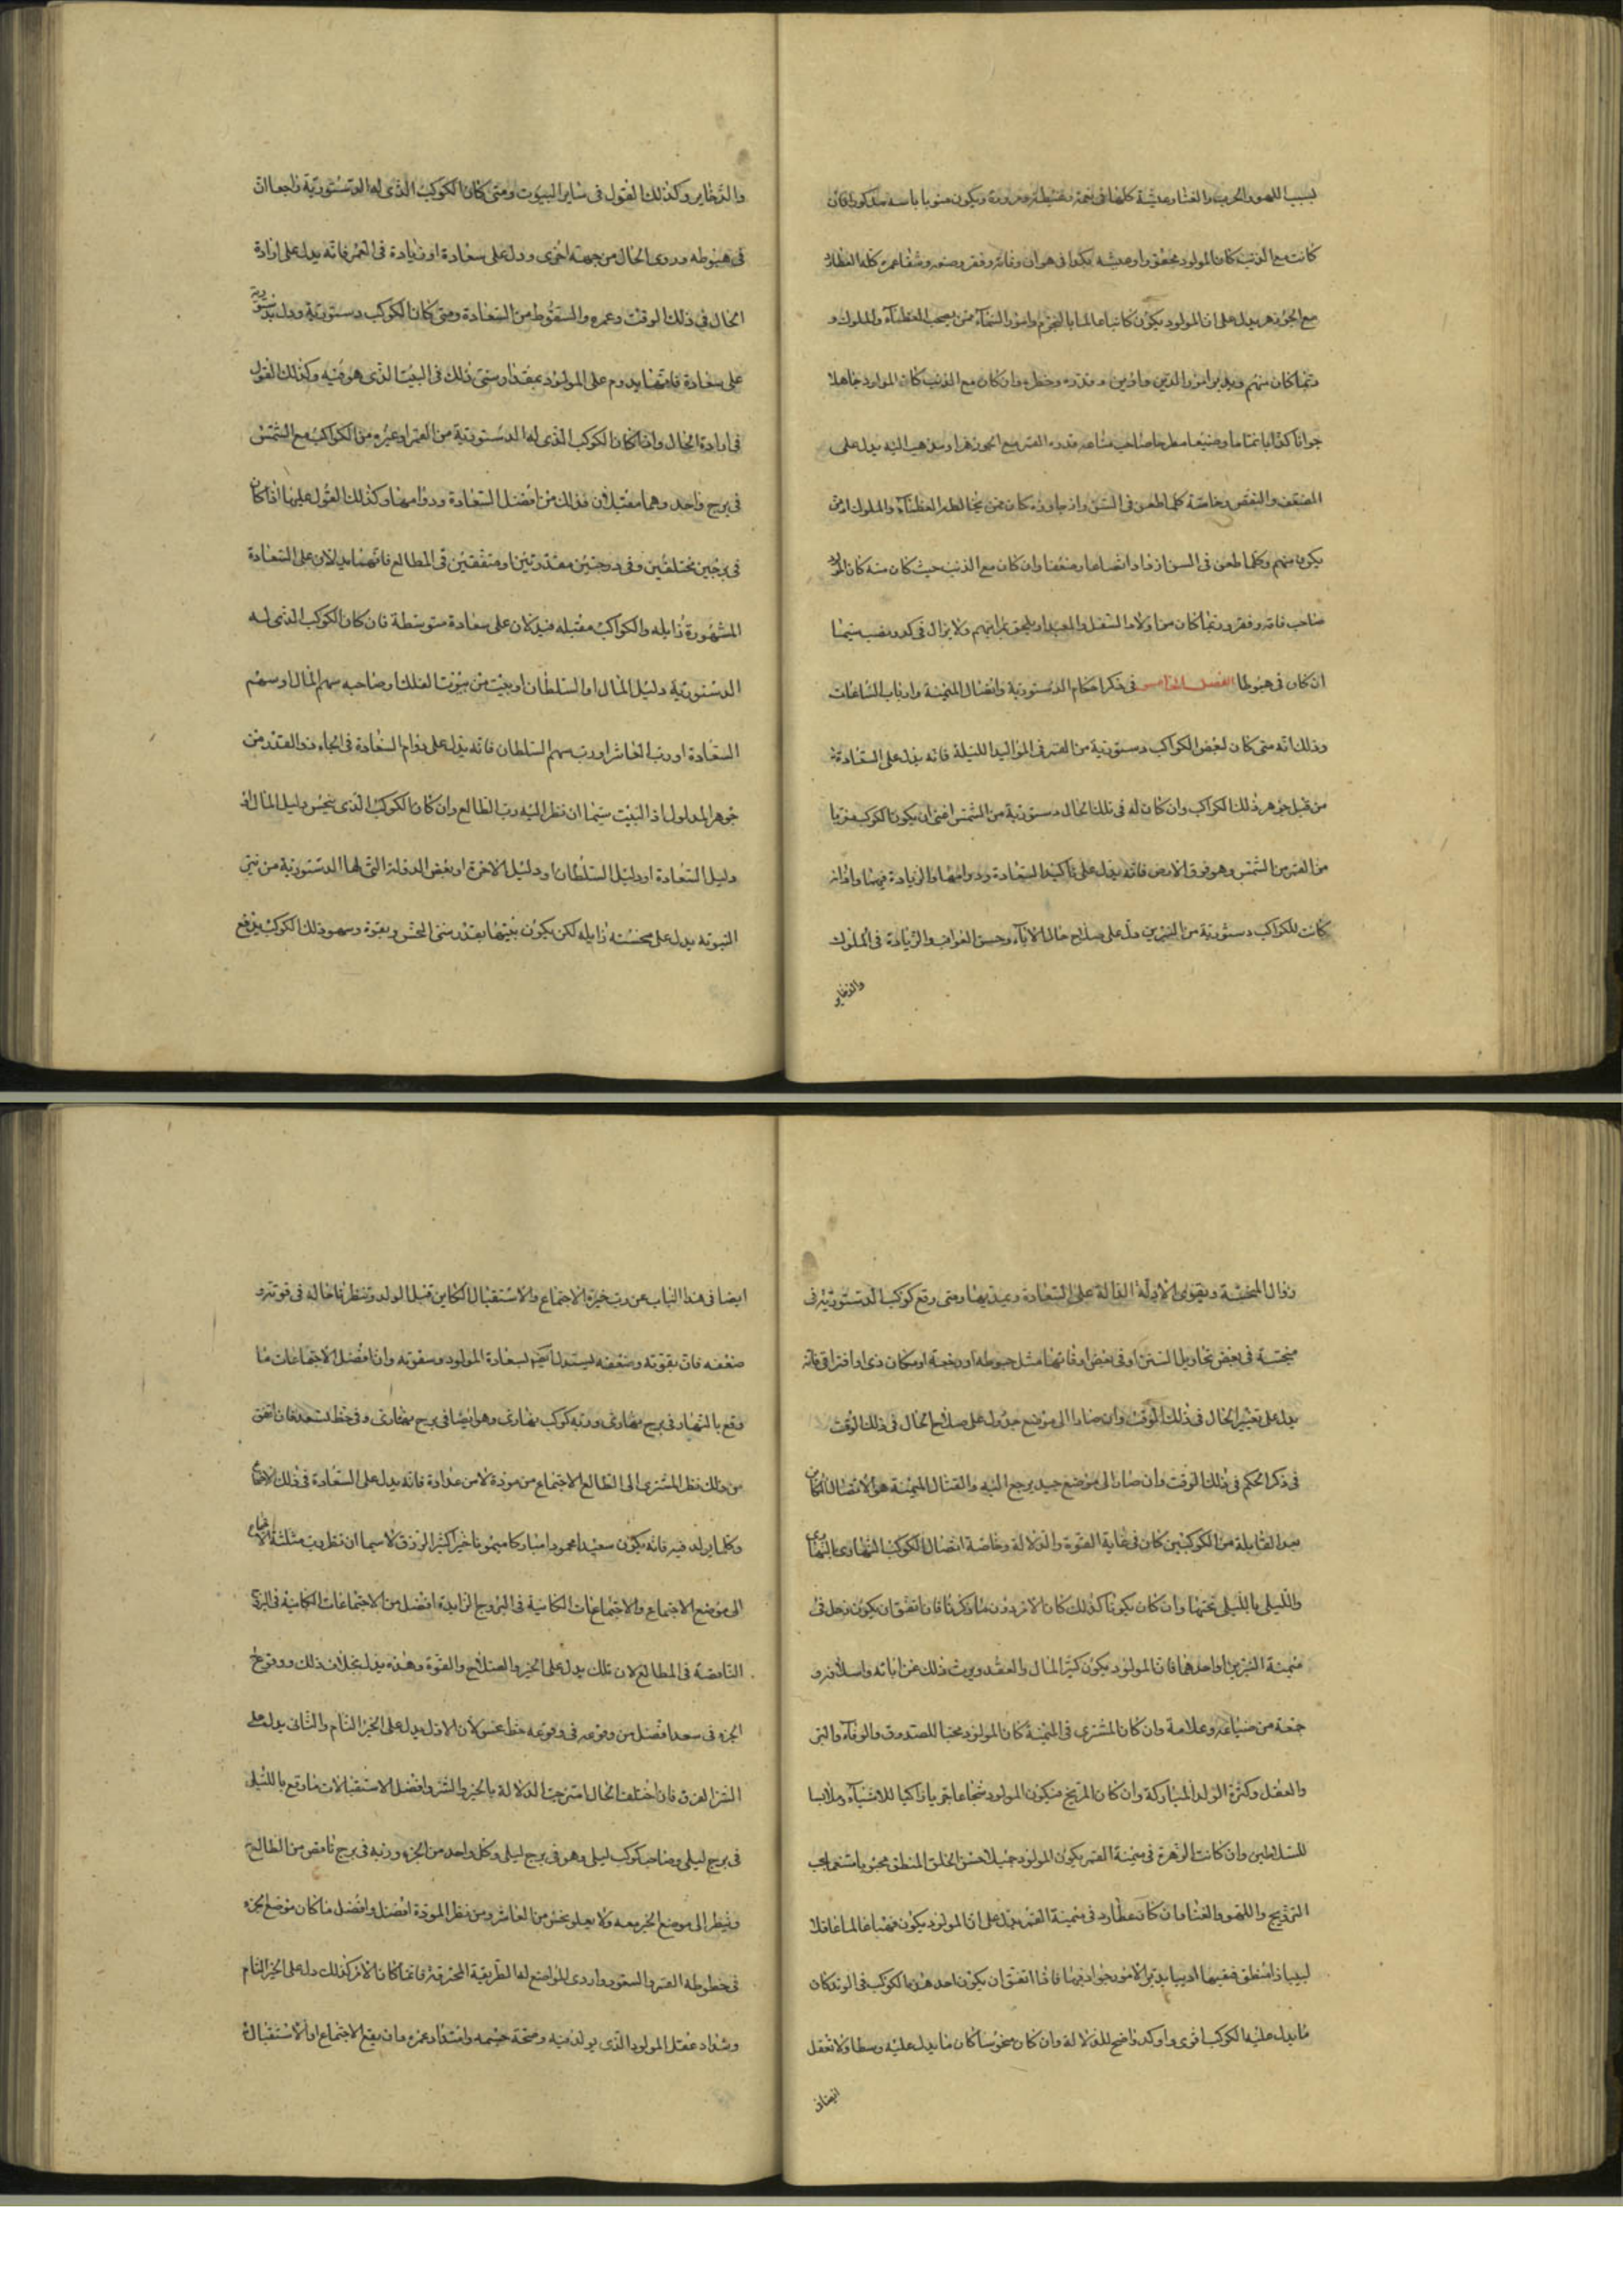 بسبب اللهو والحرب والغنا وعيشة كلها فى نعمة وغبطة ويكون منويا
كانت مع الذنب كان المولود وعيشه نكدا فى هوان وفاقة وفقر
مع الجوزهر يدل على ان المولود يكون كاتبا عالما بالنجوم وامور السماء ممن يصحب العظماء والملوك و
ربما كان منهم ويدبر امور الدين وقدره وخطره وان كان مع الذنب كان المولود جاهلا
القمر مع الجوزهر او يذهب اليه يدل على
الضعف والنقص وخاصة كلما طعن فى السن كان ممن يخالطه العظماء والملوك او من
يكون منهم وكلما طعن فى السن ازداد اتضاعا وضعفا وان كان مع الذنب حيث كان منه كان المولود
صاحب فاقه وفقر وربما كان من اولاد السفل والعبيد او يلحق بمراتبهم ولا يزال فى كد ونصب سيما
ان كان فى هبوطا الفصل الخامس فى ذكر احكام الدستورية واتصال الميمنة وارباب الساعات
وذلك انه متى كان لبعض الكواكب دستورية من القمر فى المواليد الليلة فانه يدل على السعادة
من قبل جوهر ذلك الكواكب وان كان له فى تلك الحال دستورية من الشمس اعنى ان يكون الكوكب
من القمر من الشمس وهو فوق الارض فانه يدل على تاكيد السعادة ودوامها والزيادة فيها واذا
كانت للكواكب دستورية من النيرين دل على صلاح حال الاباء وحسن العواقب والزيادة فى الملوك
والذخاير
والذخاير وكذلك القول فى ساير البيوت ومتى كان الكوكب الذى له الدستورية راجعا او
فى هبوطه وردى الحال من جهة اخرى ودل على سعادة او زيادة فى العمر فانه يدل على ارادة
الحال فى ذلك الوقت وعمره والسقوط من السعادة ومتى كان الكوكب دستورية ودل بدستوريه
على سعادة فانها يدوم على المولود بمقدار سنى ذلك فى البيت الذى هو فيه وكذلك القول
فى ارادة الحال واذا كان الكوكب الذى له الدستورية من القمر او غيره من الكواكب مع الشمس
فى برج واحد وهما مقبلان فذلك من افضل السعادة ودوامها وكذلك القول عليها اذا كان
فى برجين مختلفين وفى درجتين مقدرتين او متفقين فى المطالع فانهما يدلان على السعادة
المشهورة زايله والكواكب مقبله فيدلان على سعادة متوسطة فان كان الكوكب الذى له
الدستورية دليل المال او السلطان او بيت من بيوت الفلك او صاحبه سهم المال او سهم
السعادة او رب العاشر او رب سهم السلطان فانه يدل على دوام السعادة فى الجاه والقدر من
جوهر المدلول اذ البيت سيما ان نظر اليه رب الطالع وان كان الكوكب الذى ينحس دليل المال او
دليل السعادة او دليل السلطان او دليل الاخرة او بعض الدولة التى لها الدستورية من نبى
النبوته يدل على منحسته زايله لكن يكون بقيتها بقدر سنى النحس وبقوة وسمو ذلك الكوكب يدفع
زوال المنحسة ويقوى الادلة الدالة على السعادة ومتى رقع كوكب الدستورية فى
منحسة فى بعض تحاويل السنين او فى بعض اوقاتها مثل هبوطه او رجعة او مكان ردى او افتراق فانه
يدل على تغيير الحال فى ذلك الوقت وان صارا الى موضع جيد دل على صلاح الحال فى ذلك الوقت
فى ذكر الحكم فى ذلك الوقت وان صار الى موضع جيد يرجع اليه والقتال الميمنة هو الاتصال الكاين
بعد المقابلة من الكوكبين كان فى غاية القوة والدلالة وخاصة اتصال الكوكب النهارى بالنهارى
والليلى بالليلى تحتها وان كان يكونا كذلك كان الامر دون ما ذكرنا فان اتفق ان يكون زحل فى
ميمنة النيرين او احدهما فان المولود يكون كثير المال والعقد ويرث ذلك عن ابائه واسلافه و
جمعه من ضياعه وعلامة وان كان المشترى فى الميمنة كان المولود محبا للصدوق والوفاء والبر
والعقل وكثرة الولد المباركة وان كان المريخ فيكون المولود شجاعا جريا زاكيا للاشياء وملابسا
للسلاطين وان كانت الزهرة فى ميمنة القمر يكون المولود جميلا حسن الخلق المنطق محبوبا يحب
التزويج واللهو والغنا فان كان عطارد فى ميمنة القمر يدل على ان المولود يكون فهما عالما عاقلا
لبيبا ذا منطق فقيها اديبا يدبر الامور بجوانبها فاذا اتفق ان يكون احد هذه الكوكب فى الوتد كان
ما يدل عليه الكوكب اقوى واوكد واضح للدلالة وان كان منحوسا كان ما يدل عليه وسطا ولا تغفل
ايضا فى
ايضا فى هذا الباب عن رب جزء الاجتماع والاستقبال الكاين قبل الولد وتنظر ما حاله فى قوته و
ضعفه فان بقوته وضعفه ليستدل لسعادة المولود وسقوته وان افضل الاجتماعات ما
وقع بالنهار فى برج نهارى وربه كوكب نهارى وهو ايضا فى برج نهارى وفى حظ لسعد فان اتفق
من ذلك نظر المشترى الى الطالع الاجتماع من مودة لا من عداوة فانه يدل على السعادة فى ذلك الاجتماع
وكلما يولد فيه فانه يكون سعيدا محمودا مباركا ميمونا خيرا كثير الرزق لا سيما ان نظر رب مثلثة الاجتماع
الى موضع الاجتماع والاجتماعات الكاينة فى البروج الزايدة افضل من الاجتماعات الكاينة فى البروج
الناقصة فى المطالع لان تلك يدل على الخير والصلاح والقوة وهذه يدل بخلاف ذلك ووقوع
الجزء فى سعد افضل من وقوعه فى وقوعه حظ نحس لان الاول يدل على الخير التام والثانى يدل على
الشر الغرق فان اختلف الحال امتزجت الدلالة بالخير والشر وافضل الاستقبالات ما وقع بالليلى
فى برج ليلى وصاحب كوكب ليلى وهو فى برج ليلى وكل واحد من الجزء وربه فى برج ناقص من الطالع
وينظر الى موضع الخير معه ولا يعلو نحس من العاشر ومن نظر المودة افضل وافضل ما كان موضع الجزء
فى حظوظه القمر والسعود واردى المواضع لها الطريقة المحترقة فانما كان الامر كذلك دل على الخير التام
وسداد عقل المولود الذى يولد فيه وصحة جسمه وامتداد عمره وان يقع الاجتماع او الاستقبال